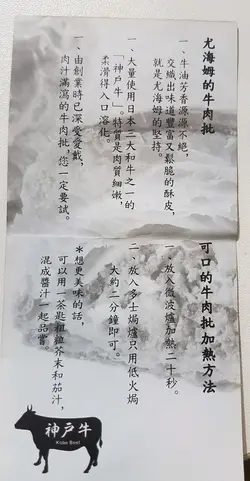 尤海姆的牛肉批
一、牛油芳香源源不絕，
交織出味道豐富又鬆脆的酥皮，
就是尤海姆的堅持。
一、大量使用日本三大和牛之一的
「神戶牛」。特質是肉質細嫩，
柔滑得入口溶化。
一、由創業時已深受愛戴，
肉汁滿瀉的牛肉批，您一定要試。
可口的牛肉批加熱方法
一、放入微波爐加熱二十秒。
二、放入多士焗爐只用低火焗
大約二分鐘即可。
＊想更美味的話，
可以用一茶匙粗粒芥末和茄汁，
混成醬汁一起品嘗。
神戸牛
Kobe Beef